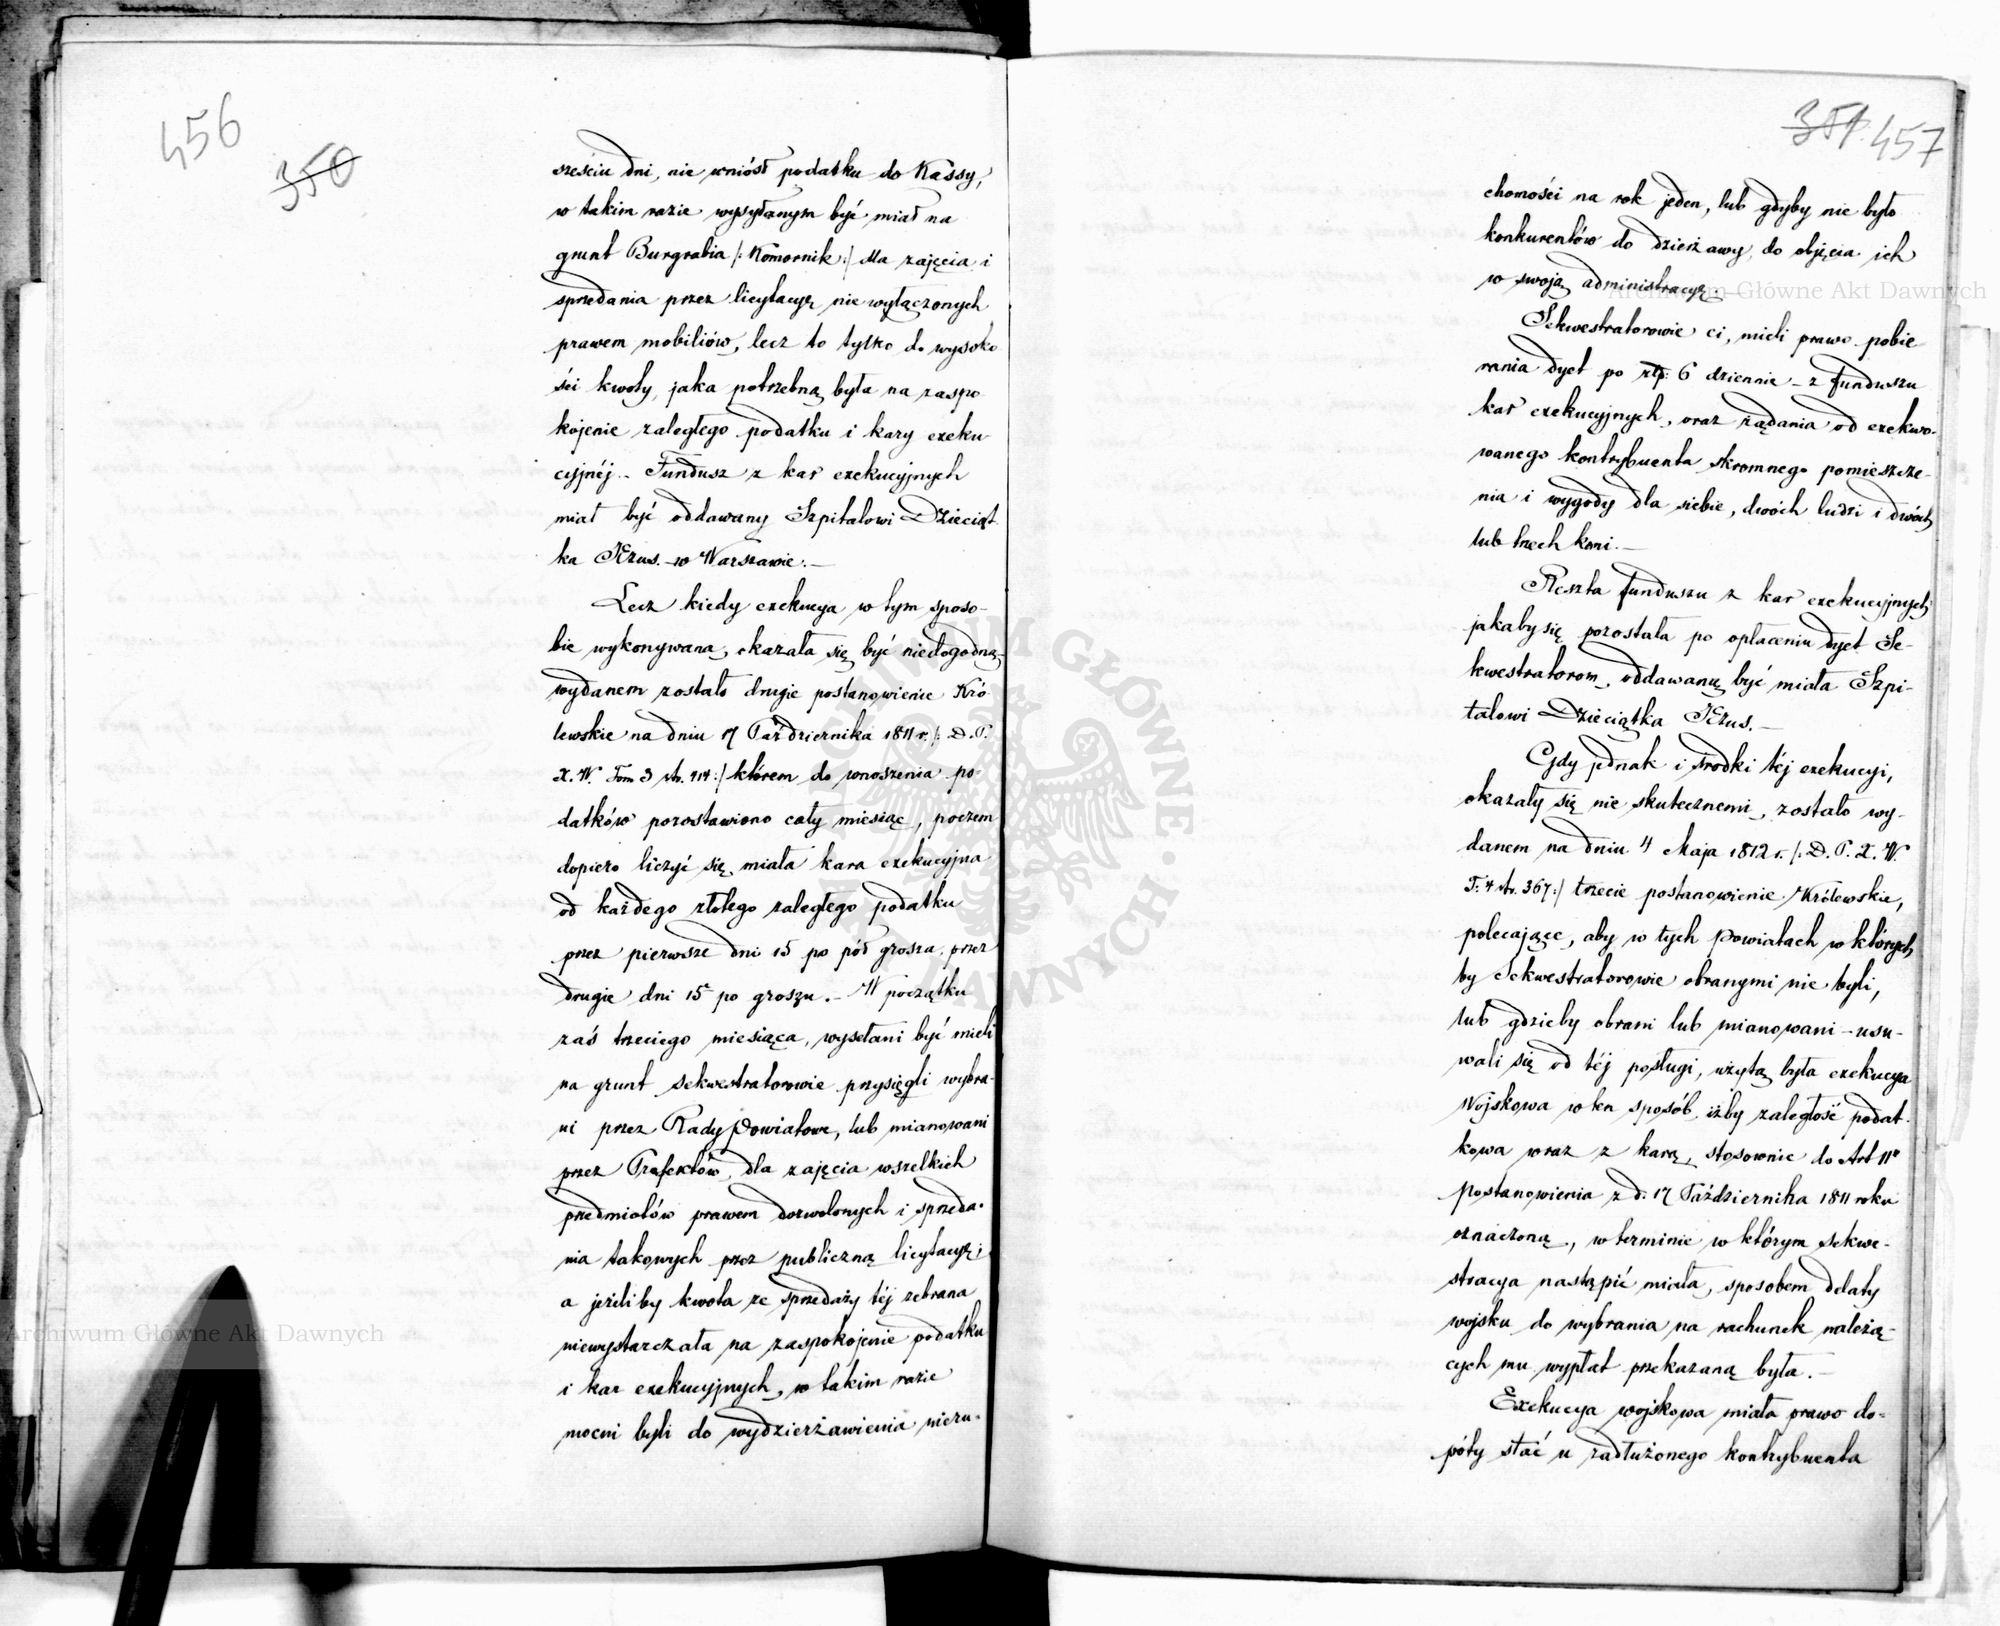 456
350
sześciu dni, nie wniósł podatku do Kassy,
w takim razie wysyłanym być miał na
grunt Burgrabia /: Komornik :/ dla zajęcia i
sprzedania przez licytacyę nie wyłączonych
prawem mobiliów, lecz to tylko do wysoko
ści kwoty, jaka potrzebną była na zaspo
kojenie zaległego podatku i kary exeku-
cyjnéj.- Fundusz z kar exekucyjnych
miał być oddawany Szpitalowi Dzieciąt-
ka Jezus.- w Warszawie.-
Lecz kiedy exekucya w tym sposo-
bie wykonywana, okazała się być niedogodną,
wydanem zostało drugie postanowienie Kró
lewskie na dniu 17 Października 1811 r. /: D. P.
X. W. Tom 3 str. 414 :/ którem do wnoszenia po-
datków pozostawiono cały miesiąc, poczem
dopiero liczyć się miała kara exekucyjna
od każdego złotego zaległego podatku
przez pierwsze dni 15 po pół grosza, przez
drugie dni 15 po groszu.- W początku
zaś trzeciego miesiąca, wysełani być mieli
na grunt sekwestratorowie przysięgli wybra-
ni przez Rady Powiatowe, lub mianowani
przez Prefektów, dla zajęcia wszelkich
przedmiotów prawem dozwolonych i sprzeda-
nia takowych przez publiczną licytacyę;
a jeżeliby kwota ze sprzedaży téj zebrana
niewystarczała na zaspokojenie podatku
i kar exekucyjnych, w takim razie
mocni byli do wydzierżawienia nieru-
351. 457
chomości na rok jeden, lub gdyby nie było
konkurentów do dzierżawy, do objęcia ich
w swoją administracyę.-
Sekwestratorowie ci, mieli prawo pobie
rania dyet po złp: 6 dziennie - z funduszu
kar exekucyjnych, oraz żądania od exekwo-
wanego kontrybuenta skromnego pomieszcze-
nia i wygody dla siebie, dwóch ludzi i dwóch
lub trzech koni.-
Reszta funduszu z kar exekucyjnych
jakaby się pozostała po opłaceniu dyet Se-
kwestratorom, oddawaną być miała Szpi-
talowi Dzieciątka Jezus.-
Gdy jednak i środki téj exekucyi,
okazały się nie skutecznemi, zostało wy-
danem na dniu 4 Maja 1812 r. /: D. P. X. W.
T: 4 str. 367 :/ trzecie postanowienie Królewskie,
polecające, aby w tych Powiatach w których
by Sekwestratorowie obranymi nie byli,
lub gdzieby obrani lub mianowani - usu-
wali się od téj posługi, użytą była exekucya
Wojskowa w ten sposób, iżby zaległość podat-
kowa wraz z karą, stosownie do Art 11º
postanowienia z d: 17 Października 1811 roku
oznaczoną, w terminie w którym sekwe-
stracya nastąpić miała, sposobem delaty
wojsku do wybrania na rachunek należą-
cych mu wypłat przekazaną była.-
Exekucya wojskowa miała prawo do-
póty stać u zadłużonego kontrybuenta
Archiwum Główne Akt Dawnych
Archiwum Główne Akt Dawnych
ARCHIWUM GŁÓWNE · AKT DAWNYCH ·